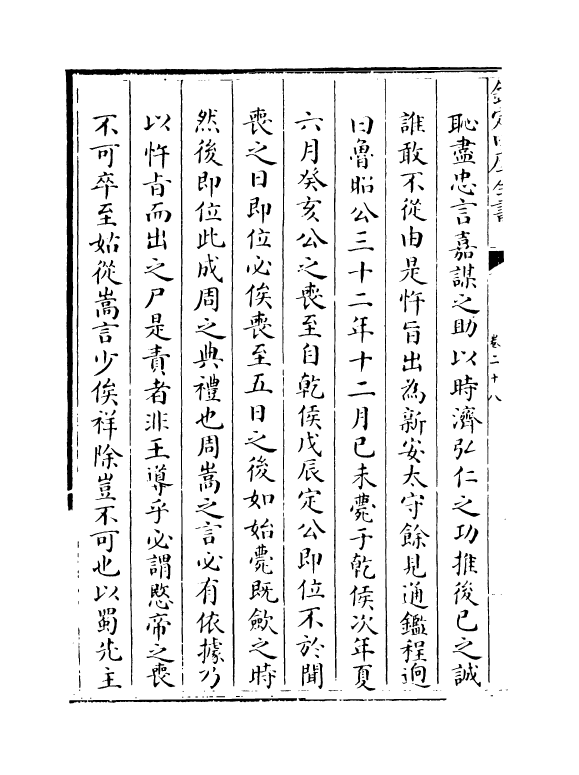 欽定四庫全書
卷二十八
恥盡忠言嘉謀之助以時濟弘仁之功推後已之誠
誰敢不從由是忤旨出為新安太守餘見通鑑程迥
曰魯昭公三十二年十二月已未薨于乾侯次年夏
六月癸亥公之喪至自乾侯戊辰定公即位不於聞
喪之日即位必俟喪至五日之後如始薨既斂之時
然後即位此成周之典禮也周嵩之言必有依據乃
以忤旨而出之尸是責者非王導乎必謂愍帝之喪
不可卒至姑從嵩言少俟祥除豈不可也以蜀先主